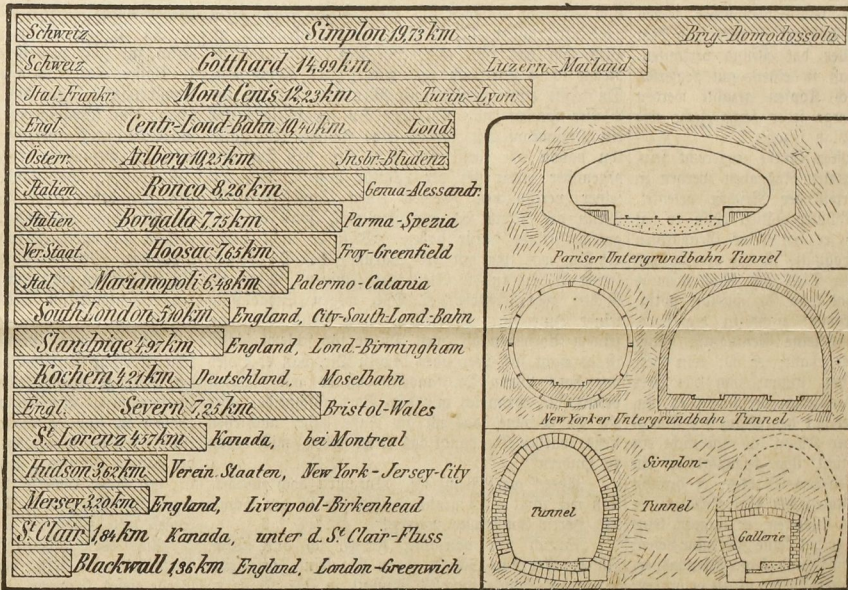 Schweiz Simplon 19,73 km Brig-Domodossola
Schweiz Gotthard 14,99 km Luzern-Mailand
Ital.-Frankr. Mont Cenis 12,23 km Turin-Lyon
Engl. Centr.-Lond-Bahn 10,40 km Lond.
Österr. Arlberg 10,25 km Insbr-Bludenz
Italien Ronco 8,26 km Genua-Alessandr.
Italien Borgalla 7,75 km Parma-Spezia
Ver. Staat. Hoosac 7,65 km Troy-Greenfield
Ital. Marianopoli 6,48 km Palermo-Catania
South London 5,10 km England, City-South-Lond-Bahn
Standpige 4,97 km England, Lond-Birmingham
Kochem 4,21 km Deutschland, Moselbahn
Engl. Severn 7,25 km Bristol-Wales
St. Lorenz 4,57 km Kanada, bei Montreal
Hudson 3,62 km Verein. Staaten, New York-Jersey-City
Mersey 3,20 km England, Liverpool-Birkenhead
St. Clair 1,84 km Kanada, unter d. St. Clair-Fluss
Blackwall 1,36 km England, London-Greenwich
Pariser Untergrundbahn Tunnel
New Yorker Untergrundbahn Tunnel
Simplon-
Tunnel
Tunnel
Gallerie